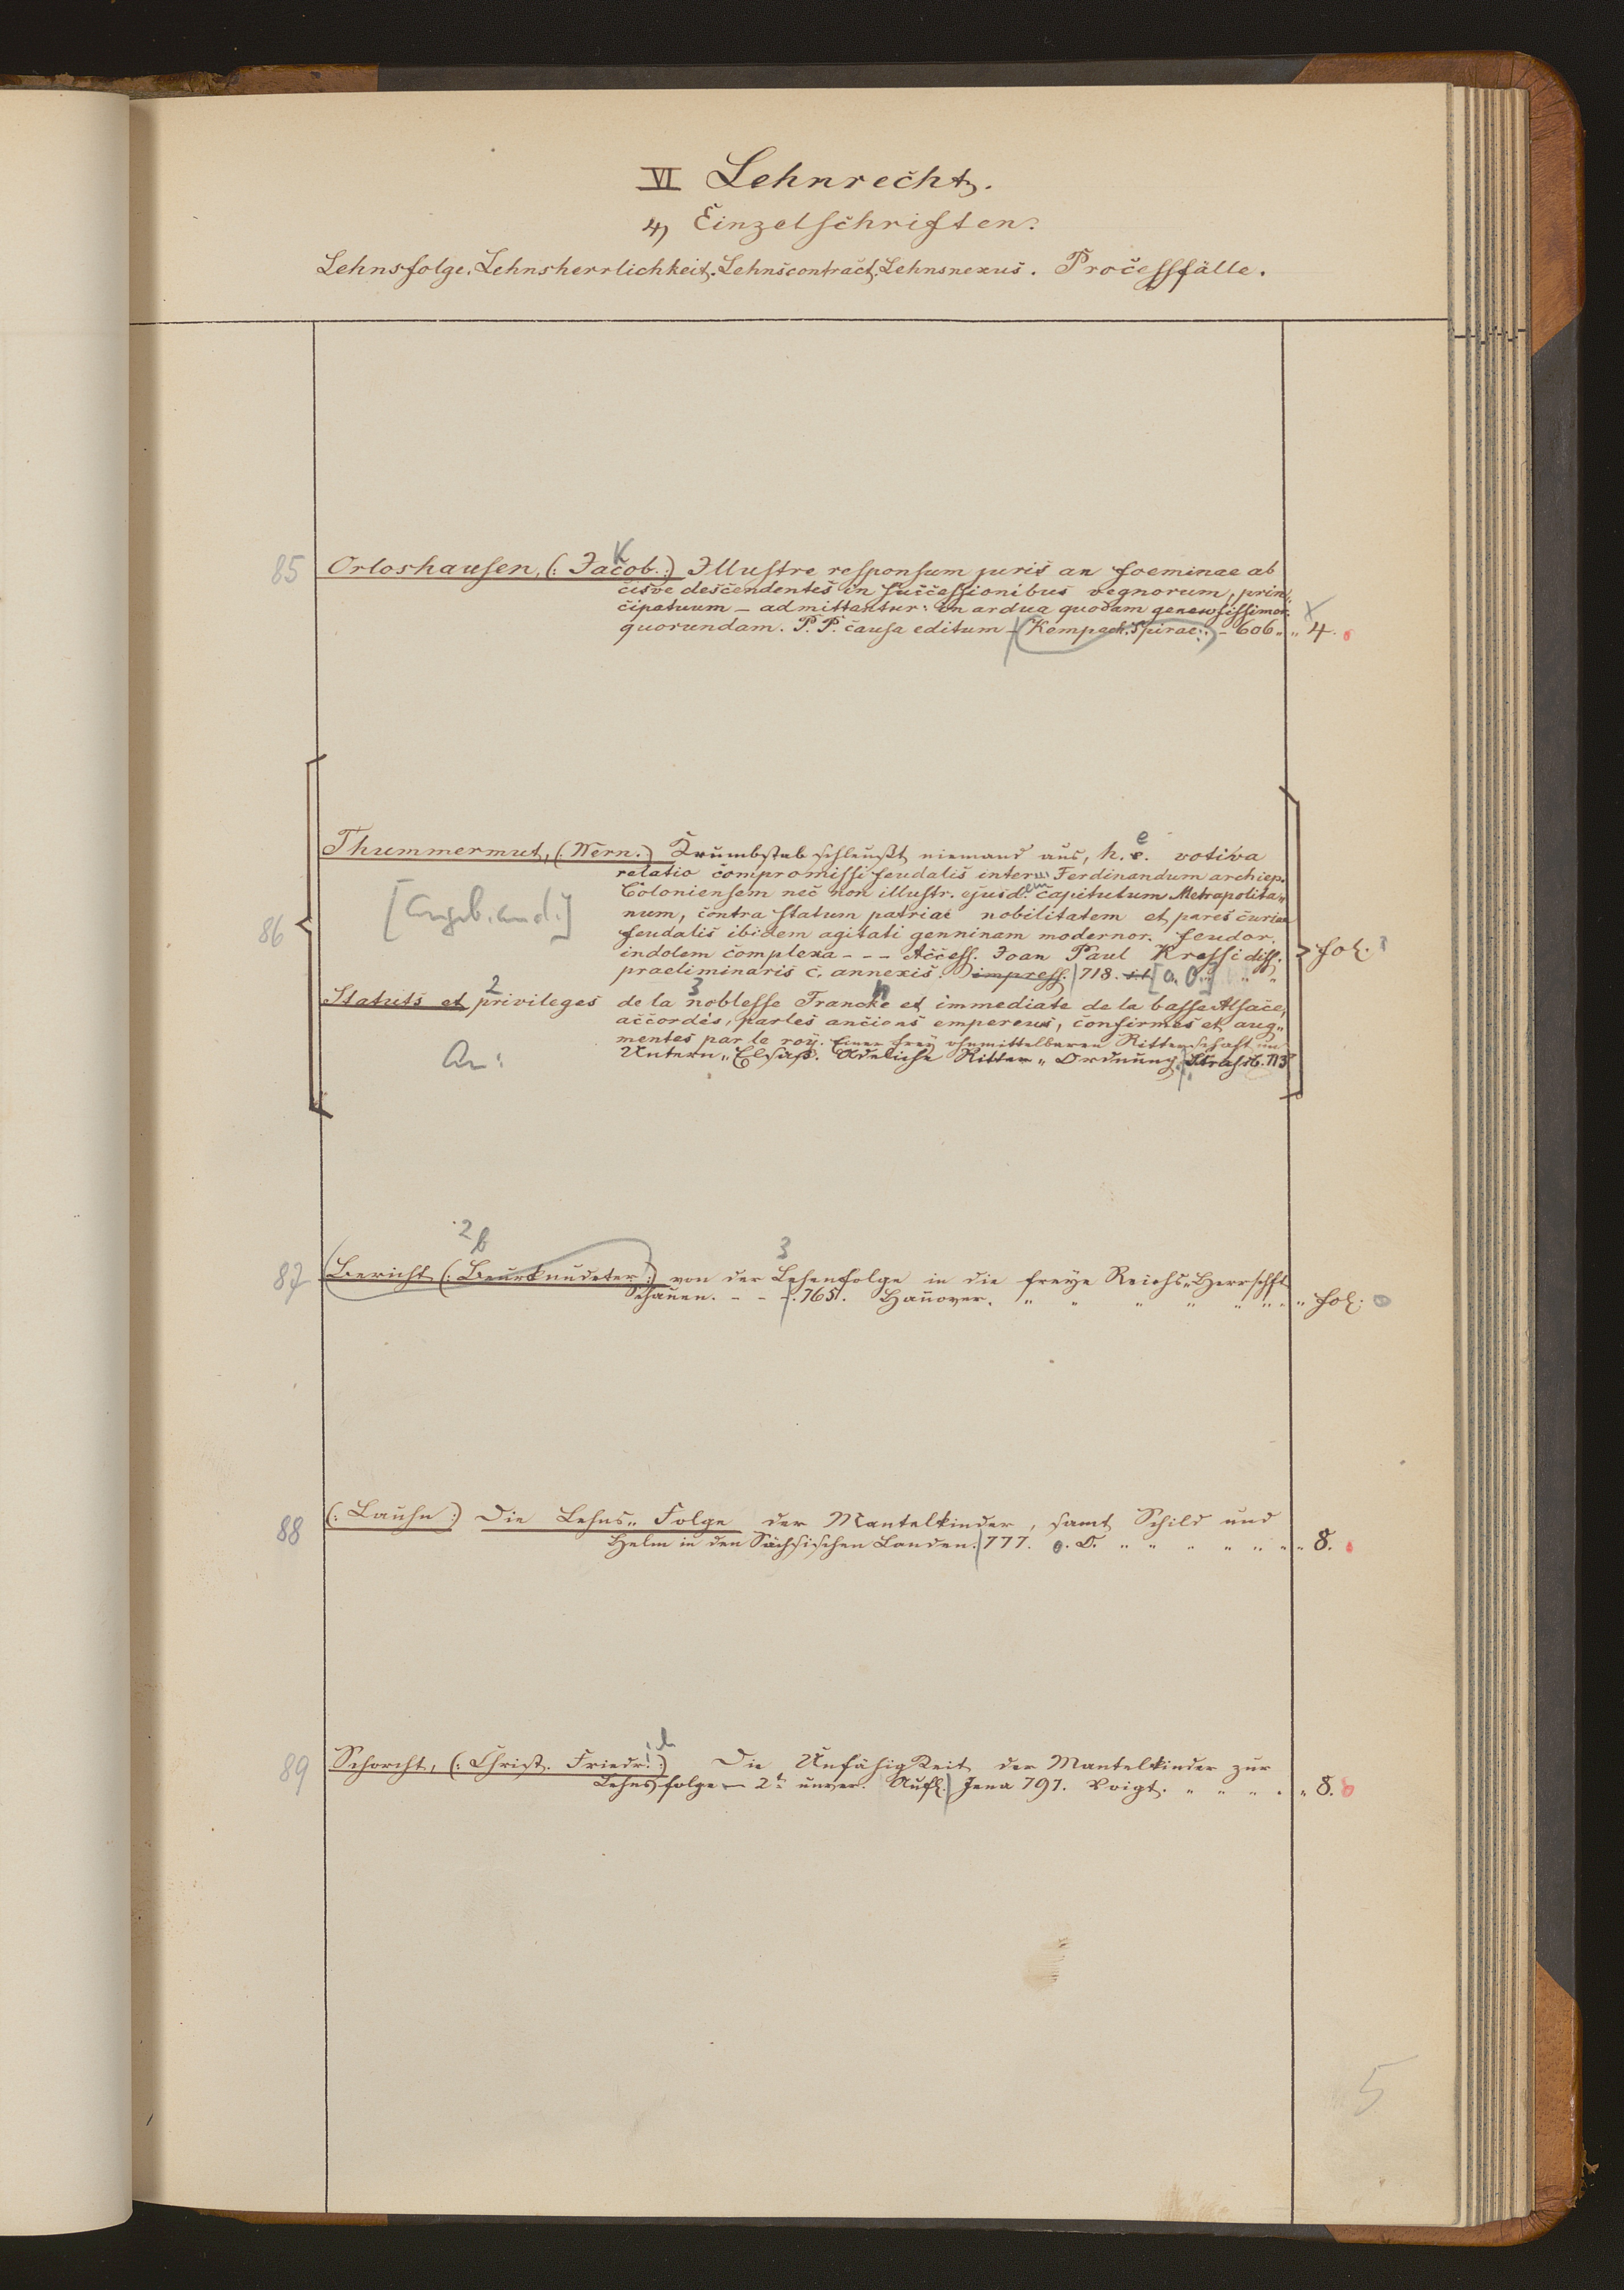 VI Lehnrecht.
4, Einzelschriften.
Lehnsfolge. Lehnsherrlichkeit. Lehnscontract. Lehnsnexus. Processfälle.
85 Orloshausen, (: Jacob :) Illustre responsum juris an foeminae ab
cisve descendentes in successionibus regnorum, prin„
cipatuum – admittantur: in ardua quodam generosissimor.
quorundam. P. P. causa editum – Kempach. Spirae. – 606 „ „ 4.
Thummermut, (. Wern.) Krumbstab schleußt niemand aus, h. e. votiva
relatio compromissi feudalis inter Ferdinandum archiep.
Coloniensem nec non illustr. ejusdem capitulum Metropolita„
[angeb. and.] num, contra statum patriae nobilitatem et pares curiae
86 feudalis ibidem agitati genninam modernor. feudor.
indolem complexa - - - Access. Joan Paul Kressi diss. fol.
praeliminaris c. annexis. impress. 718. [o. O.]
Statuts et privileges de la noblesse Franche et immediate de la basse Alsace,
accordés, parles anciens empereus, confirmes et aug„
mentes par le roÿ. Einer freÿ ohnmittelbaren Ritterschaft im
An: Untern„ Elsaß. Adeliche Ritter„ Ordnung. Strasb. 713
2 b 3
87 Bericht (: Beurkundeter :) von der Lehenfolge in die freye Reichs„ Herrschft
Schauen. - - - . 765. Hannover. „ „ „ „ „ „ „ fol.
88 (: Lauhn :) Die Lehns„ Folge der Mantelkinder, samt Schild und
Helm in den Sächsischen Landen. 777. o. O. „ „ „ „ „ „ 8.
89 Schorcht, (: Christ. Friedr. :) Die Unfähigkeit der Mantelkinder zur
Lehnsfolge – 2t unver. Aufl. Jena 791. Voigt. „ „ „ „ „ 8.
5